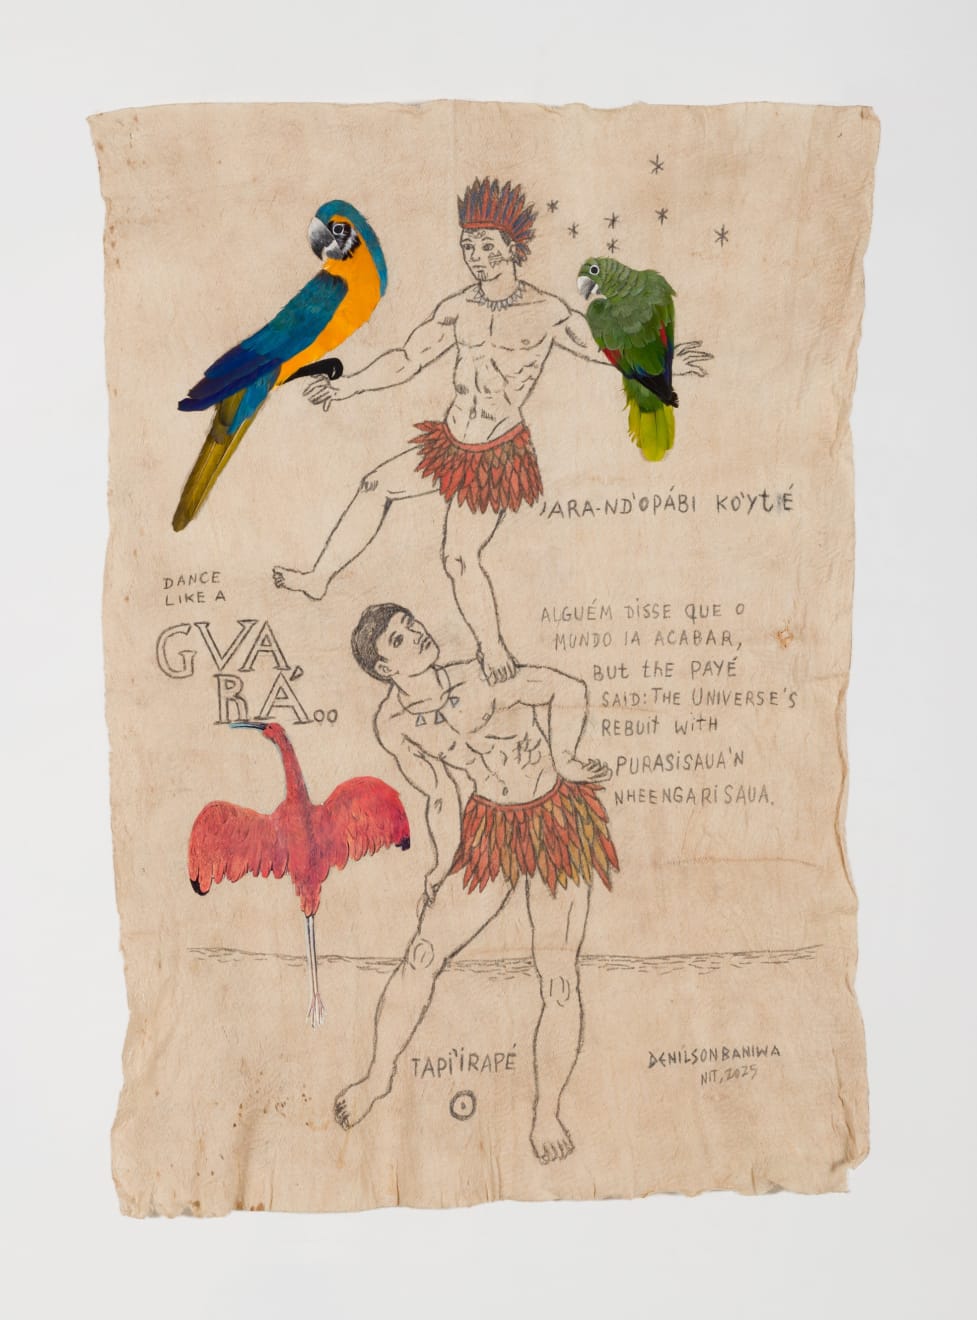 'ARA-ND'OPÁBI KO'YTÉ
DANCE
LIKE A
GVA,
RÁ..
ALGUÉM DISSE QUE O
MUNDO IA ACABAR,
BUT THE PAYÉ
SAID: THE UNIVERSE'S
REBUIT WITH
PURASISAUA'N
NHEENGARISAUA.
TAPI'IRAPÉ
DENILSONBANIWA
NIT, 2025